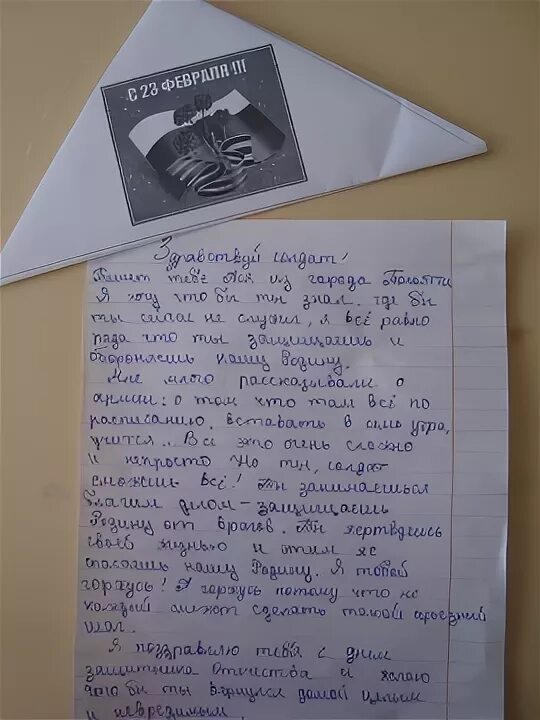 С 23 ФЕВРАЛЯ !!!
Здравствуй солдат!
Пишет тебе из города Тольятти
Я хочу что бы ты знал. где бы
ты сейчас не служил, я всё равно
рада что ты защищаешь и
обороняешь нашу Родину.
Мне много рассказывали о
армии: о том что там всё по
расписанию, вставать в утра,
учится.. Всё это очень сложно
и непросто Но ты, солдат
сможешь всё! Ты занимаешься
благим делом - защищаешь
Родину от врагов. Ты жертвуешь
своей жизнью и этим
спасаешь нашу Родину. Я тобой
горжусь! Я горжусь потому что не
каждый может сделать такой серьёзный
шаг.
Я поздравляю тебя с днём
защитника Отечества и желаю
что бы ты вернулся домой целым
и невредимым.